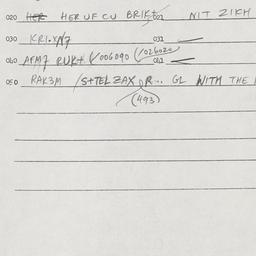 020 HER HER UF CU BRIKT 021 NIT ZIKH
030 KRI.YN7 031 —
060 AFM7 RUKT (/006090 (/026020 061 —
050 RAK3M (S+TEL ZAX OR... GL WITH THE
(493)